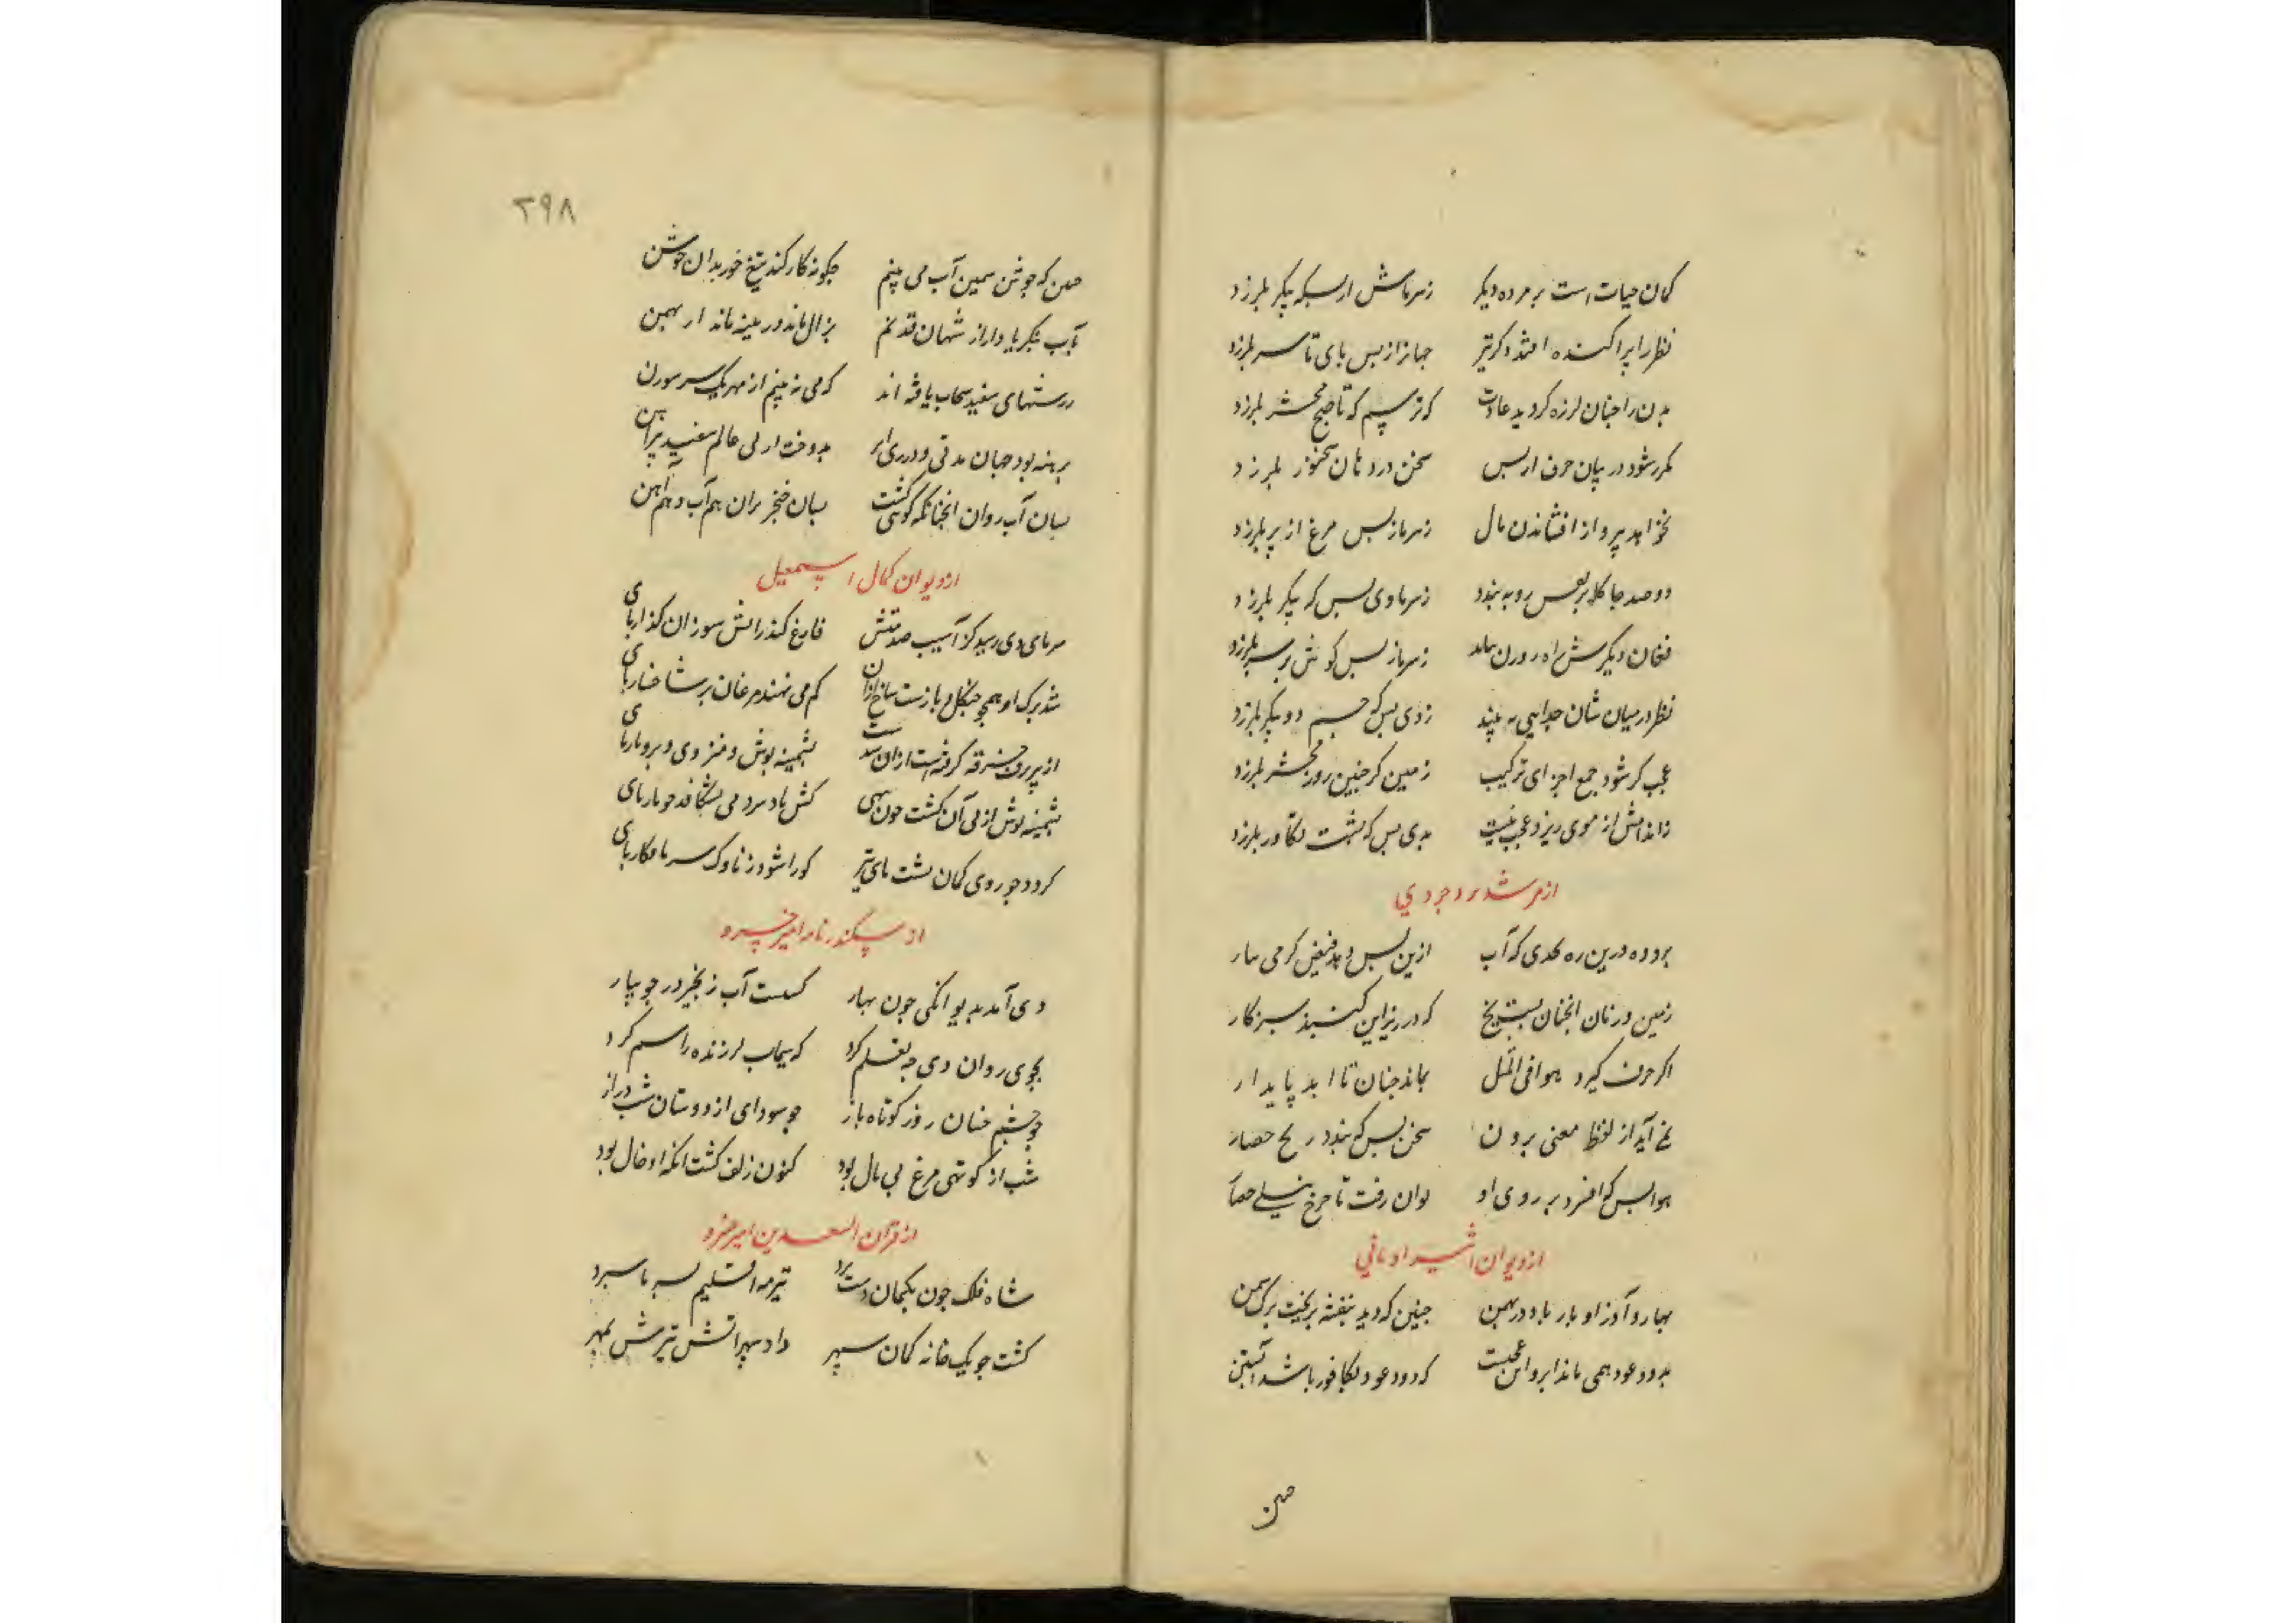 کمان حیات است بر مرده دیکر زسرماش ازبسکه پیکر بلرزد
نظر را پراکنده افتد دکرتر جهانرا ز بس پای تا سر بلرزد
بدن را چنان لرزه کردید عادت که ترسم که تا صبح محشر بلرزد
مکرر شود در بیان حرف از بس سخن در دهان سخنور بلرزد
نخواهد پرواز افشاندن بال زسرما ز بس مرغ از پر بلرزد
دو صد جا کلابر بعس رو به بندد زسرما وی بس که پیکر بلرزد
فغان دیکرش راه روزن نیابد زسرما ز بس کوش بر سر بلرزد
نظر در میان شان جدایی نه بیند ز دی بس که جسم دو پیکر بلرزد
عجب کر شود جمع اجزای ترکیب زمین کر چنین روز محشر بلرزد
ز اندامش از موی ریزد عجب نیست بدی بس که پشت تکاور بلرزد
از مرشد بروجردی
برودە درین ره که آب ازین پس دهد فیض کرمی بنار
زمین در زمان انچنان بست یخ که در زیر این کنبذ سبز کار
اکر حرف کیرد هوا فی المثل بماند چنان تا ابد پایدار
نمی آید از لفظ معنی برون سخن بس که بندد ز یخ حصار
هوا بس که افسرد بر روی او توان رفت تا چرخ نیلی حصار
از دیوان اثیر اومانی
بهار و آذر او بار باد در بهمن چنین که دید بنفشه بریخت برک سمن
بدود عود همی ماند ابر و این عجبست که دود عود بکافور باشد آبستن
من
۲۹۸
من که جوشن سیمین آب می بینم چکونه کار کند تیغ خور بدان جوشن
بآب بنکر یا دار از شهان قدیم بزال ماند و بهمن
رشتهای سفید سحاب بافته اند که می نه بینم از مهر یک سر سوزن
برهنه بود جهان مدتی و درزی ابر بدوخت از پی عالم سفید پیراهن
بسان آب روان انچنانکه کوئی کشت بسان خنجر بران هم آب و هم آهن
از دیوان کمال اسمعیل
سرمای دی رسید کز آسیب صدمتش فارغ کند ز آتش سوزان کذار پای
شد برک او همچو چنکل باز است شاخ از ان کم می نهند مرغان بر شاخسار پای
از پر برف خرقه کرفته است از ان شدست پشمینه پوش و منزوی و بردبار پای
پشمینه پوش از پی آن کشت چون بهی کش باد سرد می بشکافد چو نار پای
کردد چو روی کمان پشت های تیر کورا شود ز ناوک سرما فکار پای
از سکندر نامه امیر خسرو
دی آمد بدیوانکی چون بهار کسست آب زنجیر در جویبار
بجوی روان دی چه تعلیم کرد که سیماب لرزنده را سیم کرد
چو چشم خسان روز کوتاه باز چو سودای از دوستان شب دراز
شب از کوتهی مرغ بی بال بود کنون زلف کشت انکه او خال بود
از قران السعدین امیر خسرو
شاه فلک چون بکمان دست برد تیر مه اقلیم بسرما سپرد
کشت چو یک خانه کمان سپهر داد سپر آتش تیرش بمهر